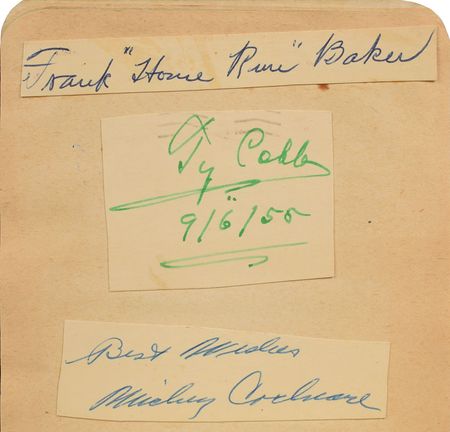 Frank "Home Run" Baker
Ty Cobb
9/6/55
Best Wishes
Mickey Cochrane